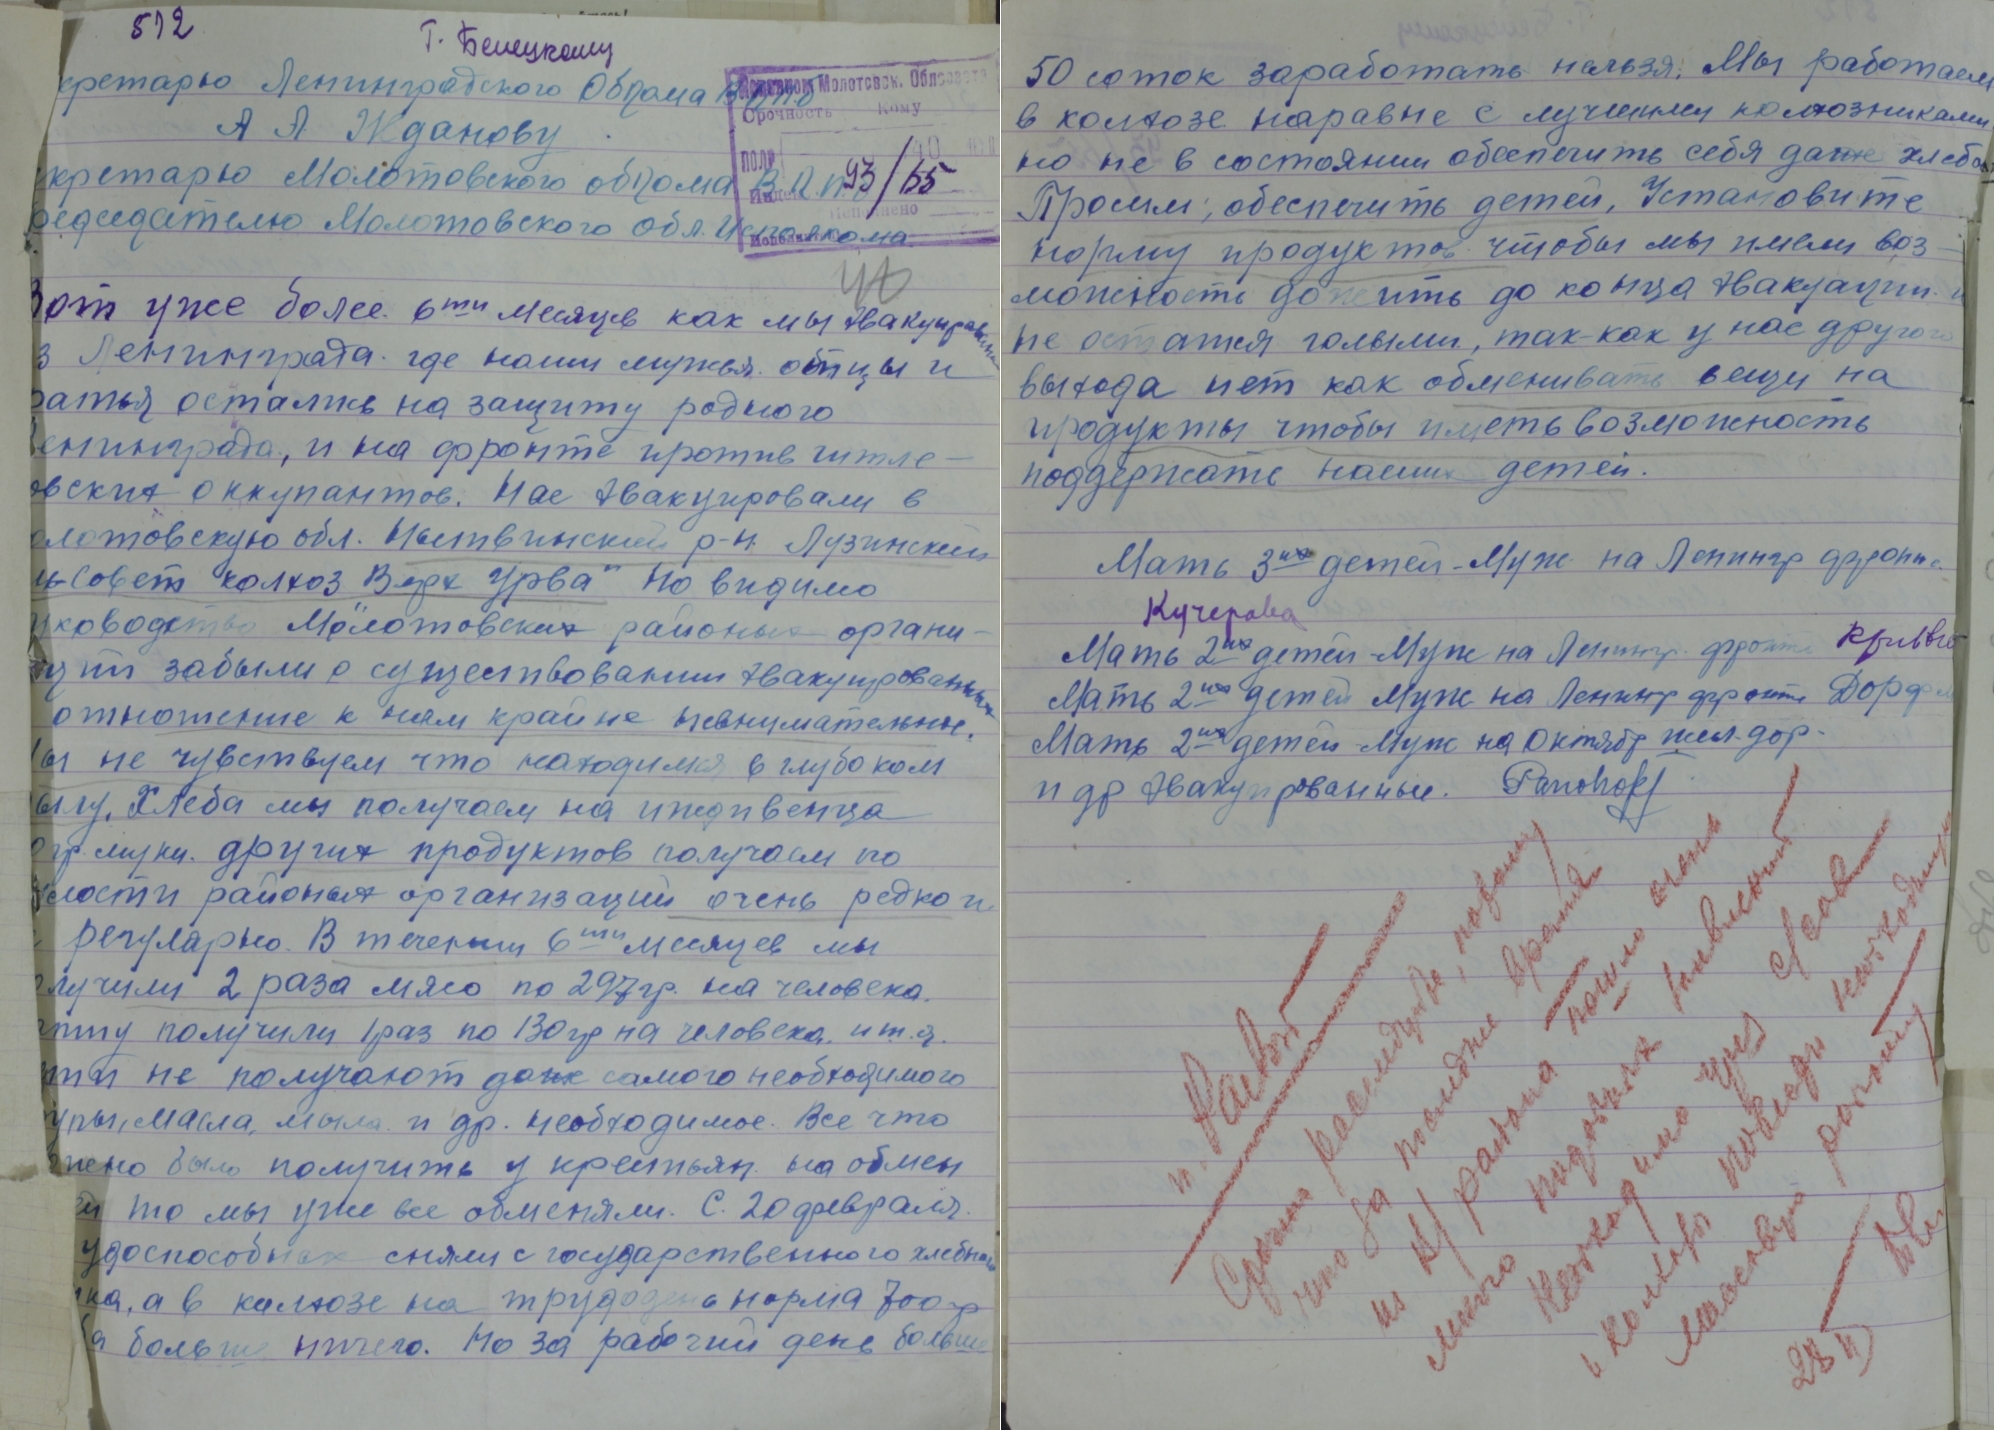 512
Т. Бенецкому
кретарю Ленинградского Обкома В.К.П.б
А А Жданову
кретарю Молотовского обкома В.К.п.
редседателю Молотовского обл. Исполкома.
Исполком Молотовск. Облсовета
Срочность Кому
93/55
Исполнено
Вот уже более 6ти месяцев как мы эвакуированы
з Ленинграда. где наши мужья. отцы и
ратья остались на защиту родного
енинграда, и на фронте против гитле-
овских оккупантов. Нас эвакуировали в
олотовскую обл. Нытвинский р-н Лузинский
ьсовет колхоз Верх Урва" Но видимо
уководство Молотовских районых органи-
забыли о существовании эвакуированных
отношение к ним крайне невнимательные.
ы не чувствуем что находимся в глубоком
ылу. Хлеба мы получаем на иждивенца
гр. муки. других продуктов получаем по
лости районых организаций очень редко и
регулярно. В течении 6ти месяцев мы
лучили 2 раза мясо по 297гр. на человека.
получили 1раз по 130гр на человека. и т.д.
ети не получают даже самого необходимого
упы, масла, мыла. и др. необходимое. Все что
жено было получить у крестьян. на обмен
то мы уже все обменяли. С. 20 февраля.
удоспособных сняли с государственного хлебного
йка, а в колхозе на трудодень норма 700гр
ба больше ничего. Но за рабочий день больше
50 соток заработать нельзя. Мы работаем
в колхозе наравне с лучшими колхозниками
но не в состоянии обеспечить себя даже хлебом
Просим, обеспечить детей, Установите
норму продуктов чтобы мы имели воз-
можность дожить до конца эвакуации. и
не остатся голыми, так-как у нас другого
выхода нет как обменивать вещи на
продукты чтобы иметь возможность
поддержать наших детей.
Мать 3их детей-Муж на Ленингр фронте
Кучерова
Мать 2их детей-Муж на Ленингр. фронте
Мать 2их детей Муж на Ленингр фронте
Мать 2их детей Муж на Октябр жел. дор.
и др эвакуированные.
Срочно
что за последнее время
из района пошло очень
много подобных
Необходимо